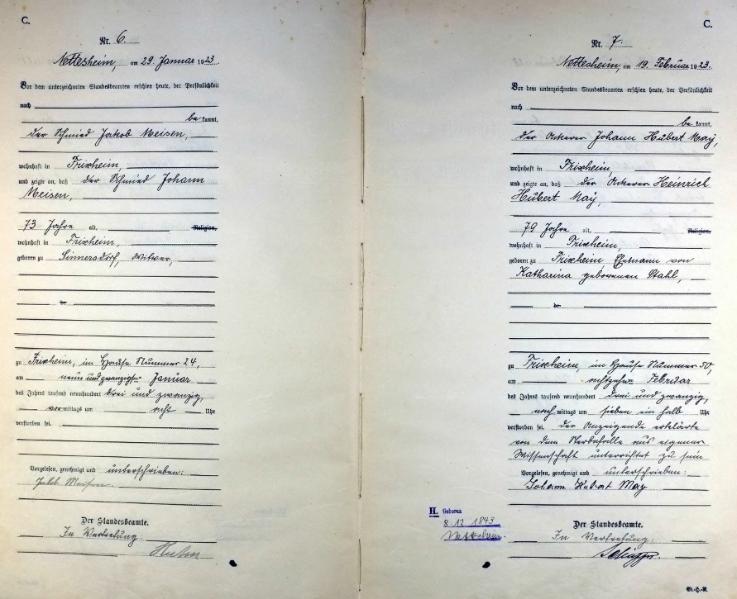 C.
Nr. 6.
Nettesheim, am 29. Januar 1923.
Vor dem unterzeichneten Standesbeamten erschien heute, der Persönlichkeit
nach
be kannt,
der Schmied Jakob Meisen,
wohnhaft in Frixheim,
und zeigte an, daß der Schmied Johann
Meisen,
73 Jahre alt, Religion,
wohnhaft in Frixheim,
geboren zu Sinnersdorf, Witwer,
zu Frixheim, im Hause Nummer 24,
am neun und zwanzigsten Januar
des Jahres tausend neunhundert drei und zwanzig,
vormittags um acht Uhr
verstorben sei.
Vorgelesen, genehmigt und unterschrieben:
Jakob Meisen
Der Standesbeamte.
In Vertretung.
C.
Nr. 7.
Nettesheim, am 19. Februar 1923.
Vor dem unterzeichneten Standesbeamten erschien heute, der Persönlichkeit
nach
be kannt,
der Ackerer Johann Hubert May,
wohnhaft in Frixheim,
und zeigte an, daß der Ackerer Heinrich
Hubert May,
79 Jahre alt, Religion,
wohnhaft in Frixheim,
geboren zu Frixheim Ehemann von
Katharina geborenen Stahl,
zu Frixheim, im Hause Nummer 50,
am achtzehn Februar
des Jahres tausend neunhundert drei und zwanzig,
nach mittags um sieben ein halb Uhr
verstorben sei. Der Anzeigende erklärte
von dem Sterbefalle aus eigener
Wissenschaft unterrichtet zu sein
Vorgelesen, genehmigt und unterschrieben:
Johann Hubert May
II. Geboren
8 12 1843
Der Standesbeamte.
In Vertretung.